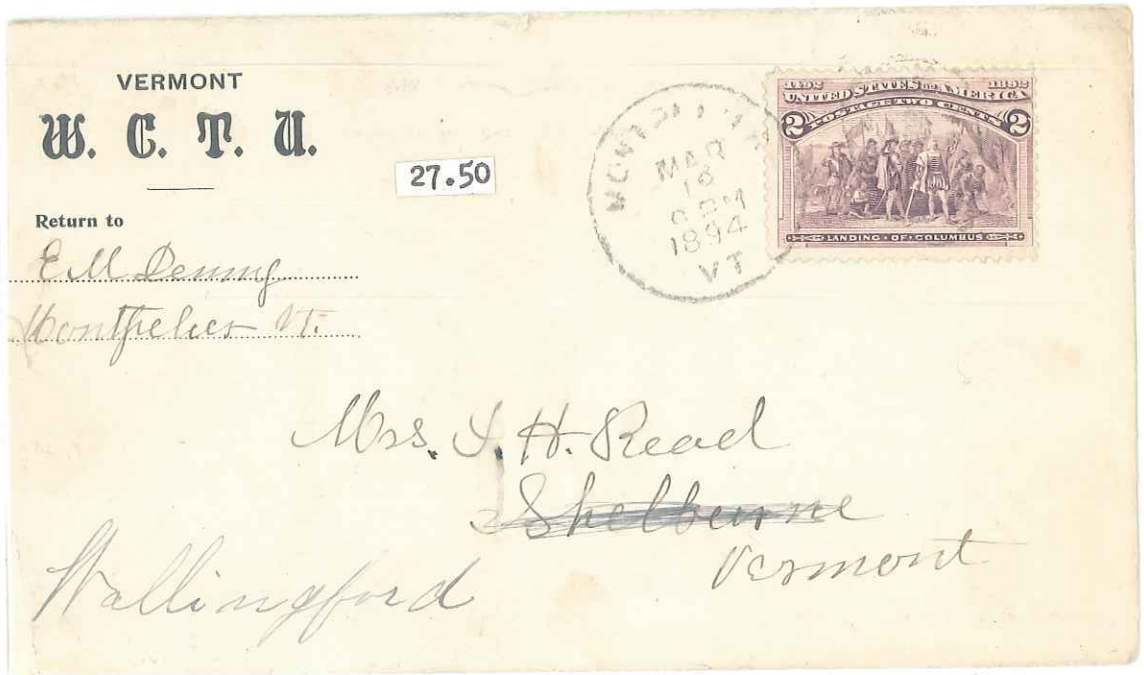 VERMONT
W. C. T. U.
27.50
Return to
E M Denny
Montpelier Vt.
MONTPELIER
MAR
16
PM
1894
VT
1492 1892
UNITED STATES OF AMERICA
POSTAGE TWO CENTS
2 2
LANDING OF COLUMBUS
Mrs. I. H. Read
Shelburne
Vermont
Wallingford